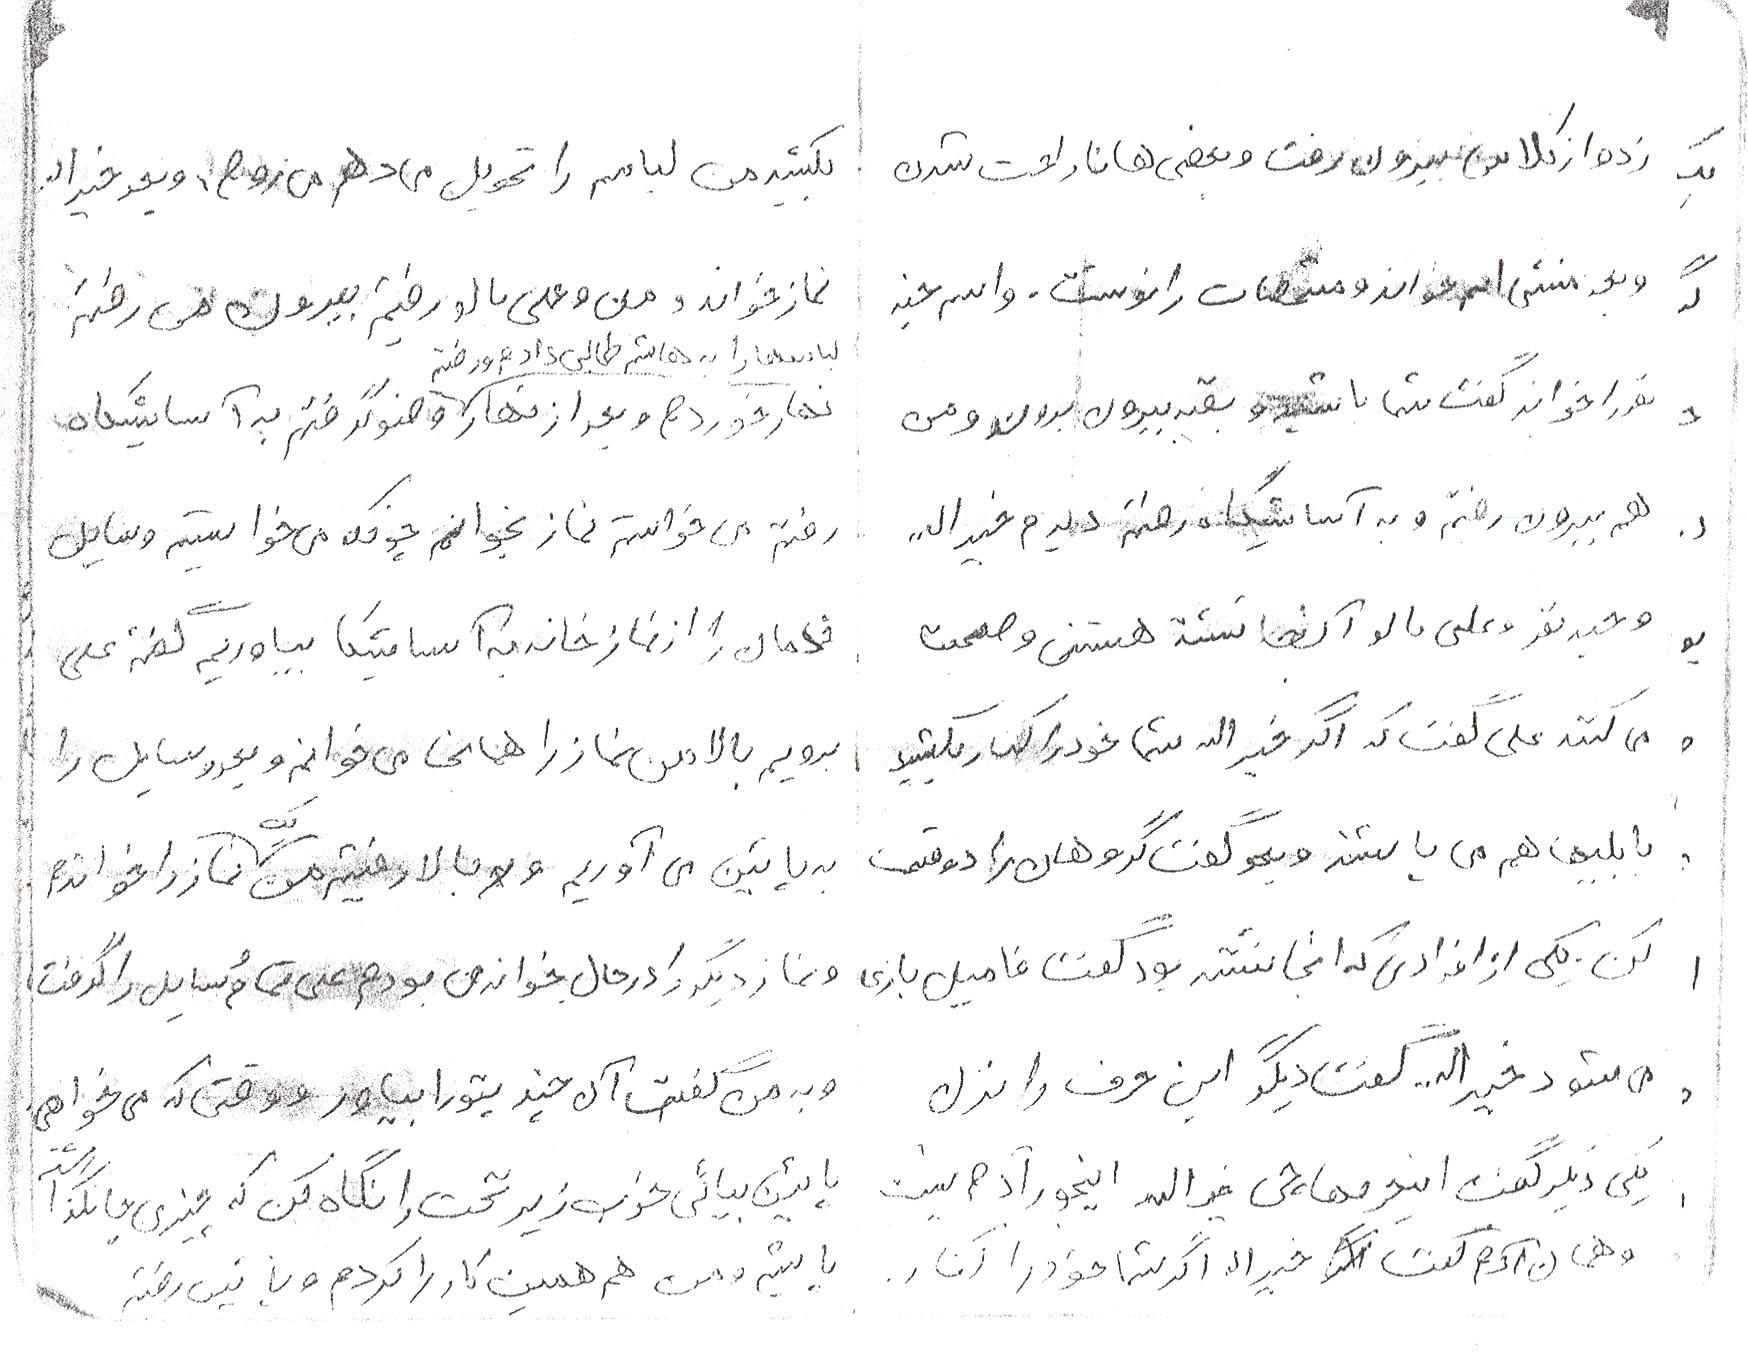 زده از کلاس بیرون رفت و بعضی ها ناراحت شدن
و بعد منشی اسم خواند و مشخصات را نوشت. و اسم چند
نفر را خواند گفت شما باشید و بقیه بیرون برون و من
هم بیرون رفتم و به آسایشگاه رفتم دیدم خیراله
و چند نفر و علی مالو آنجا نشسته هستنی و صحبت
می کنند علی گفت که اگر خیراله شما خود را کنار بکشید
با بلیها هم می پاشند و بعد گفت گروهان را دو قسمت
کن. یکی از افرادی که انجا نشسته بود گفت فامیل بازی
می شود خیراله گفت دیگر این حرف را نزن
یکی دیگر گفت اینجر حاجی خیراله اینجور آدم نیست
و همان آدم گفت خیراله اگر شما خود را کنار
بکشید من لباس را تحویل می دهم می روم، و بعد خیراله
نماز خواند و من و علی مالو رفتیم بیرون می رفتم
لباسها را به هاشم طالبی دادم و رفتم
نهار خوردم و بعد از نهار وضو گرفتم به آسایشگاه
رفتم می خواستم نماز بخوانم چونکه می خواستیم وسایل
خدمان را از نماز خانه به آسایشگا بیاوریم گفتم علی
برویم بالا من نماز را همانجا می خوانم و بعد وسایل را
به پائین می آوریم و بالا رفتیم من یک نماز را خواندم
و نماز دیگر را در حال خواندن بودم علی تمام وسایل را گرفت
و به من گفت آن چند پتو را بیاور و وقتی که می خواهی
پائین بیائی خوب زیر تخت را نگاه کن که چیزی جا نگذاشته
باشیم و من هم همین کار را کردم و پائین رفتم